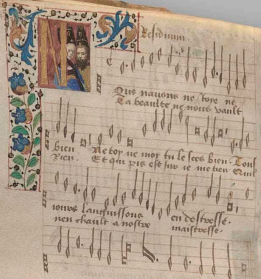 Residuum
Que nauons ne toy ne
Ta beaulte ne nous vault
bien Ne toy ne moy tu le scez bien Tous
Rien Et qui pis est sur ie me tien Quil
iours languissons en destresse
nen chault a nostre maistresse